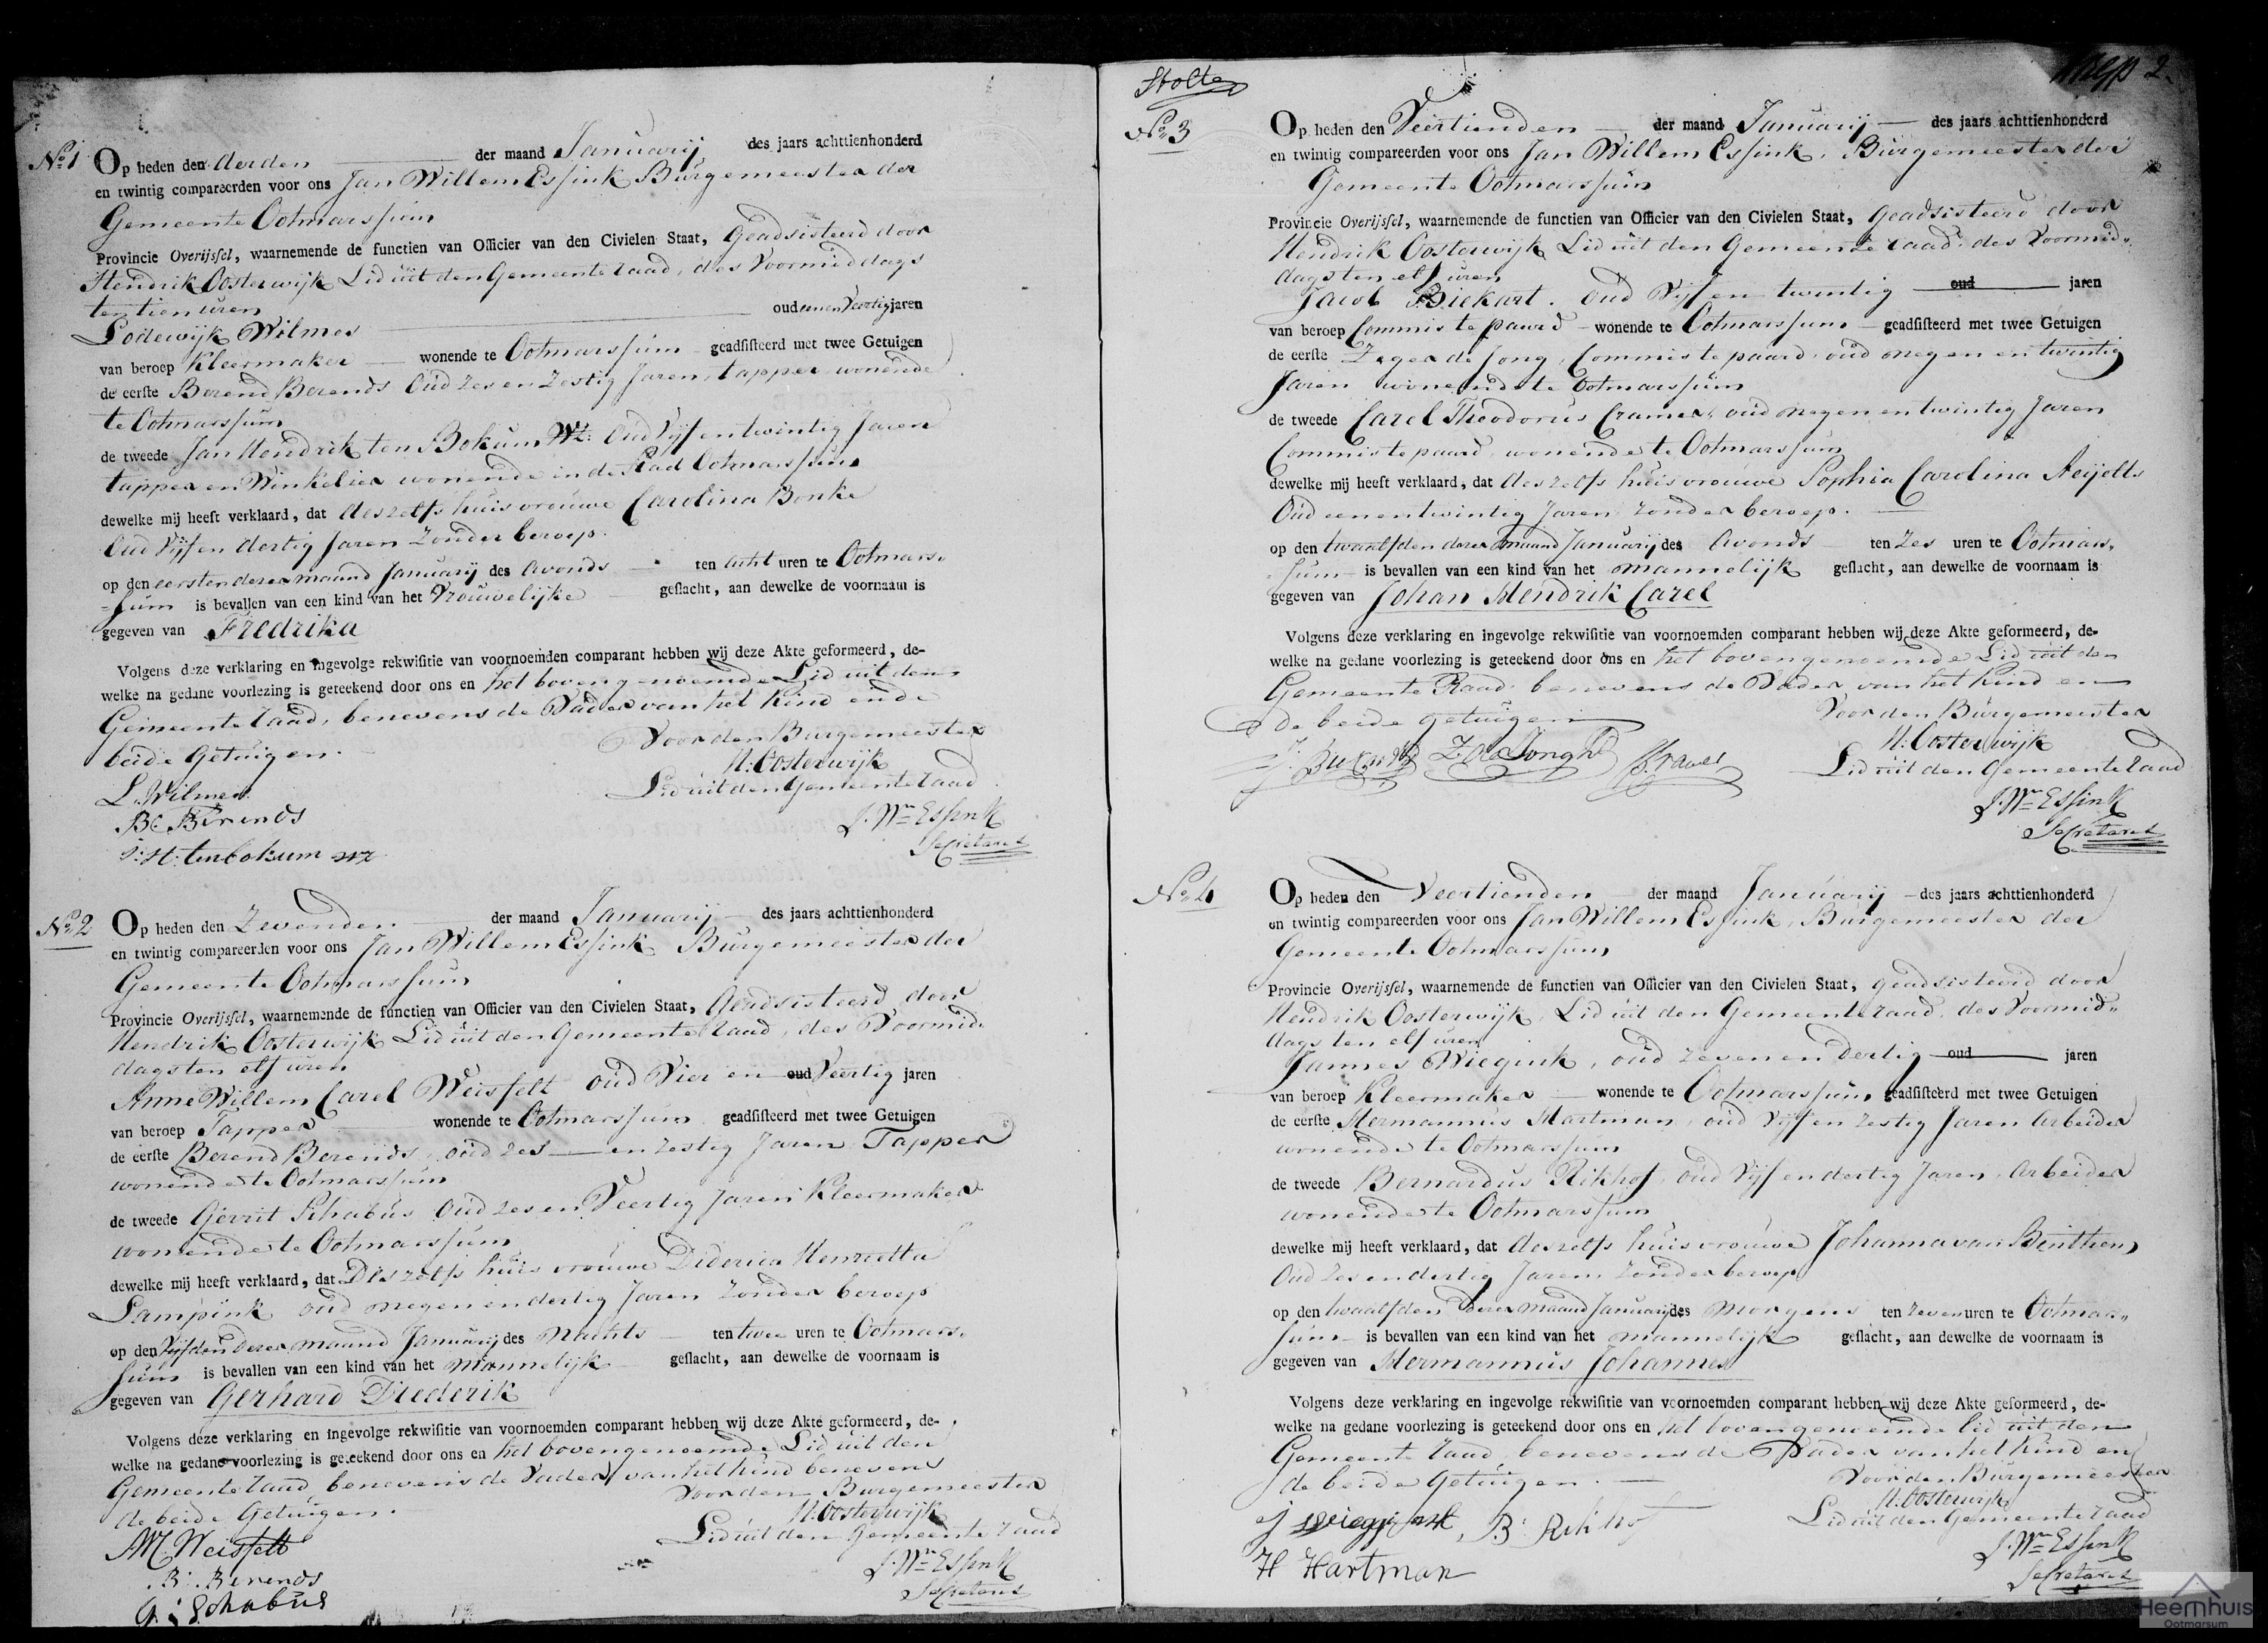 No 1
Op heden den derden der maand Januarij des jaars achttienhonderd
en twintig compareerden voor ons Jan Willem Essink Burgemeester der
Gemeente Ootmarssum
Provincie Overijsſel, waarnemende de functien van Officier van den Civielen Staat, Geadsisteerd door
Hendrik Oosterwijk Lid uit den Gemeente raad, des Voormiddags
ten tien uren
Lodewijk Wilmes oud eenen Veertig jaren
van beroep Kleermaker wonende te Ootmarssum geadſiſteerd met twee Getuigen
de eerſte Berend Berends Oud zes en zestig Jaren, tapper wonende
te Ootmarssum
de tweede Jan Hendrik ten Bokum Wz: Oud Vijf en twintig Jaren
tapper en Winkelier wonende in de Stad Ootmarssum
dewelke mij heeft verklaard, dat deszelfs huisvrouwe Carolina Bonke
Oud Vijf en dertig Jaren Zonder beroep.
op den eersten derer maand Januarij des Avonds ten acht uren te Ootmars-
-sum is bevallen van een kind van het Vrouwelijke geſlacht, aan dewelke de voornaam is
gegeven van Fredrika
Volgens deze verklaring en ingevolge rekwiſitie van voornoemden comparant hebben wij deze Akte geformeerd, de-
welke na gedane voorlezing is geteekend door ons en het bovengenoemde Lid uit den
Gemeente raad, benevens de Vader van het Kind en de
beide Getuigen.
Voor den Burgemeester
H: Oosterwijk
Lid uit den Gemeente raad
L. Wilmes
B: Berends
J: H: tenbokum wz
J. Wm Essink
Secretaris
No 2
Op heden den Zevenden der maand Januarij des jaars achttienhonderd
en twintig compareerden voor ons Jan Willem Essink Burgemeester der
Gemeente Ootmarssum
Provincie Overijsſel, waarnemende de functien van Officier van den Civielen Staat, Geadsisteerd door
Hendrik Oosterwijk Lid uit den Gemeente raad, des Voormid-
dags ten elf uren
Anne Willem Carel Weisfelt oud Vier en oud Veertig jaren
van beroep Tapper wonende te Ootmarssum geadſiſteerd met twee Getuigen
de eerſte Berend Berends, oud zes en zestig Jaren Tapper
wonende te Ootmarssum
de tweede Gerrit Schabus Oud zes en Veertig Jaren Kleermaker
wonende te Ootmarssum
dewelke mij heeft verklaard, dat Deszelfs huisvrouwe Diderica Henrietta
Lampink oud negen en dertig Jaren Zonder beroep
op den Vijfden derer maand Januarij des Nachts ten twee uren te Ootmars-
sum is bevallen van een kind van het Mannelijk geſlacht, aan dewelke de voornaam is
gegeven van Gerhard Diederik
Volgens deze verklaring en ingevolge rekwiſitie van voornoemden comparant hebben wij deze Akte geformeerd, de-
welke na gedane voorlezing is geteekend door ons en het bovengenoemde Lid uit den
Gemeente raad, benevens de Vader van het kind benevens
de beide Getuigen.
Voor den Burgemeester
H: Oosterwijk
Lid uit den Gemeente raad
Weisfelt
B: Berends
G: Schabus
J. Wm Essink
Secretaris
Stolte
2
No 3
Op heden den Veertienden der maand Januarij des jaars achttienhonderd
en twintig compareerden voor ons Jan Willem Essink, Burgemeester der
Gemeente Ootmarssum
Provincie Overijsſel, waarnemende de functien van Officier van den Civielen Staat, Geadsisteerd door
Hendrik Oosterwijk Lid uit den Gemeente raad des Voormid-
dags ten elf uren
Jacob Biekart. Oud Vijf en twintig oud jaren
van beroep Commis te paard wonende te Ootmarssum geadſiſteerd met twee Getuigen
de eerſte Zeger de Jong, Commis te paard, oud negen en twintig
Jaren wonende te Ootmarssum
de tweede Carel Theodorus Cramer, oud negen en twintig Jaren
Commis te paard, wonende te Ootmarssum
dewelke mij heeft verklaard, dat deszelfs huisvrouwe Sophia Carolina Reijelts
Oud een en twintig Jaren zonder beroep.
op den twaalfden derer maand Januarij des Avonds ten Zes uren te Ootmars-
sum is bevallen van een kind van het mannelijk geſlacht, aan dewelke de voornaam is
gegeven van Johan Hendrik Carel
Volgens deze verklaring en ingevolge rekwiſitie van voornoemden comparant hebben wij deze Akte geformeerd, de-
welke na gedane voorlezing is geteekend door ons en het bovengenoemde Lid uit den
Gemeente Raad benevens de Vader van het Kind en
de beide getuigen
Voor den Burgemeester
H: Oosterwijk
Lid uit den Gemeente raad
Z: de Jongh
J. Wm Essink
Secretaris
No 4
Op heden den Veertienden der maand Januarij des jaars achttienhonderd
en twintig compareerden voor ons Jan Willem Essink, Burgemeester der
Gemeente Ootmarssum
Provincie Overijsſel, waarnemende de functien van Officier van den Civielen Staat, geadsisteerd door
Hendrik Oosterwijk, Lid uit den Gemeente raad, des Voormid-
dags ten elf uren
Jannes Wiegink, oud zeven en dertig oud jaren
van beroep Kleermaker wonende te Ootmarssum geadſiſteerd met twee Getuigen
de eerſte Hermannus Hartman, oud Vijf en zestig Jaren Arbeider
wonende te Ootmarssum
de tweede Bernardus Rikhof, Oud Vijf en dertig Jaren, Arbeider
wonende te Ootmarssum
dewelke mij heeft verklaard, dat deszelfs huisvrouwe Johanna van Benthem
Oud Zes en dertig Jaren Zonder beroep
op den twaalfden derer maand Januarij des Morgens ten zeven uren te Ootmar-
sum is bevallen van een kind van het mannelijk geſlacht, aan dewelke de voornaam is
gegeven van Hermannus Johannes
Volgens deze verklaring en ingevolge rekwiſitie van voornoemden comparant hebben wij deze Akte geformeerd, de-
welke na gedane voorlezing is geteekend door ons en het bovengenoemde lid uit den
Gemeente raad, benevens de Vader van het kind en
de beide Getuigen.
Voor den Burgemeester
H: Oosterwijk
Lid uit den Gemeente raad
j wieggink, B: Rikhof
H Hartman
J. Wm Essink
Secretaris
Heemhuis
Ootmarsum